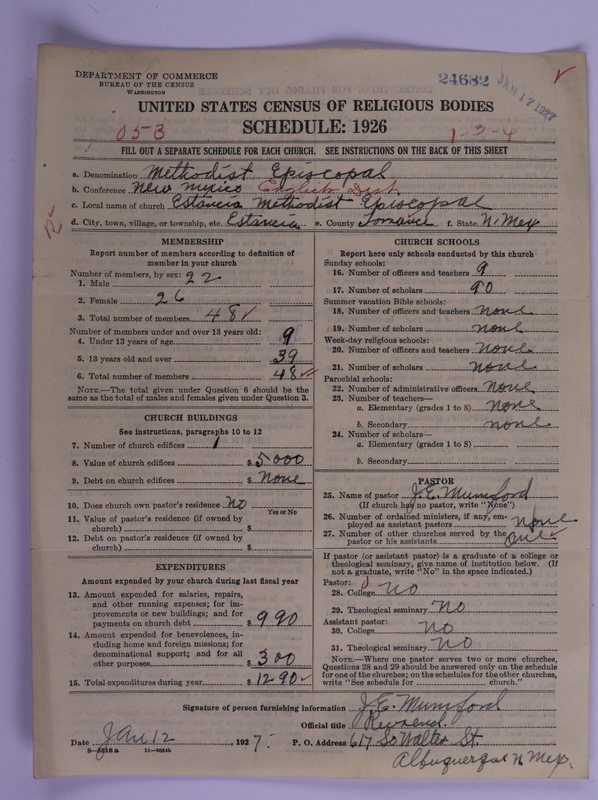 DEPARTMENT OF COMMERCE
BUREAU OF THE CENSUS
WASHINGTON
24682
JAN 17 1927
UNITED STATES CENSUS OF RELIGIOUS BODIES
SCHEDULE: 1926
053
1-3-4
FILL OUT A SEPARATE SCHEDULE FOR EACH CHURCH. SEE INSTRUCTIONS ON THE BACK OF THIS SHEET
a. Denomination Methodist Episcopal
b. Conference New Mexico English Dist.
c. Local name of church Estancia Methodist Episcopal
d. City, town, village, or township, etc. Estancia e. County Torrance f. State N. Mex
MEMBERSHIP
Report number of members according to definition of
member in your church
Number of members, by sex:
1. Male 22
2. Female 26
3. Total number of members 48
Number of members under and over 13 years old:
4. Under 13 years of age 9
5. 13 years old and over 39
6. Total number of members 48
NOTE.—The total given under Question 6 should be the
same as the total of males and females given under Question 3.
CHURCH BUILDINGS
See instructions, paragraphs 10 to 12
7. Number of church edifices 1
8. Value of church edifices $ 5000
9. Debt on church edifices $ None
10. Does church own pastor's residence? No
Yes or No
11. Value of pastor's residence (if owned by
church) $
12. Debt on pastor's residence (if owned by
church) $
EXPENDITURES
Amount expended by your church during last fiscal year
13. Amount expended for salaries, repairs,
and other running expenses; for im-
provements or new buildings; and for
payments on church debt $ 990
14. Amount expended for benevolences, in-
cluding home and foreign missions; for
denominational support; and for all
other purposes $ 300
15. Total expenditures during year $ 1290
CHURCH SCHOOLS
Report here only schools conducted by this church
Sunday schools:
16. Number of officers and teachers 9
17. Number of scholars 90
Summer vacation Bible schools:
18. Number of officers and teachers none
19. Number of scholars none
Week-day religious schools:
20. Number of officers and teachers none
21. Number of scholars none
Parochial schools:
22. Number of administrative officers none
23. Number of teachers—
a. Elementary (grades 1 to 8) none
b. Secondary none
24. Number of scholars—
a. Elementary (grades 1 to 8)
b. Secondary
PASTOR
25. Name of pastor J. E. Mumford
(If church has no pastor, write "None")
26. Number of ordained ministers, if any, em-
ployed as assistant pastors none
27. Number of other churches served by the
pastor or his assistants one
If pastor (or assistant pastor) is a graduate of a college or
theological seminary, give name of institution below. (If
not a graduate, write "No" in the space indicated.)
Pastor:
28. College No
29. Theological seminary No
Assistant pastor:
30. College No
31. Theological seminary No
NOTE.—Where one pastor serves two or more churches,
Questions 28 and 29 should be answered only on the schedule
for one of the churches; on the schedules for the other churches,
write "See schedule for church."
Signature of person furnishing information J. E. Mumford
Official title Reverend.
Date Jan 12, 1927. P. O. Address 617 So Walter St.
Albuquerque N. Mex.
8-5516a 11-9034b